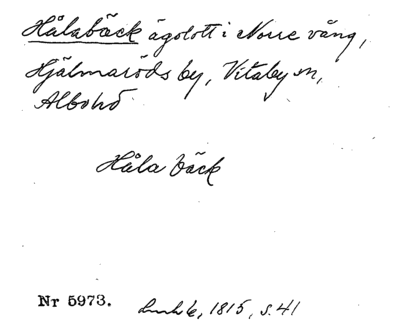 Hålabäck ägolott i Norre vång,
Hjälmaröds by, Vitaby sn,
Albo hd
Håla bäck
Nr 5973.
1815, s. 41